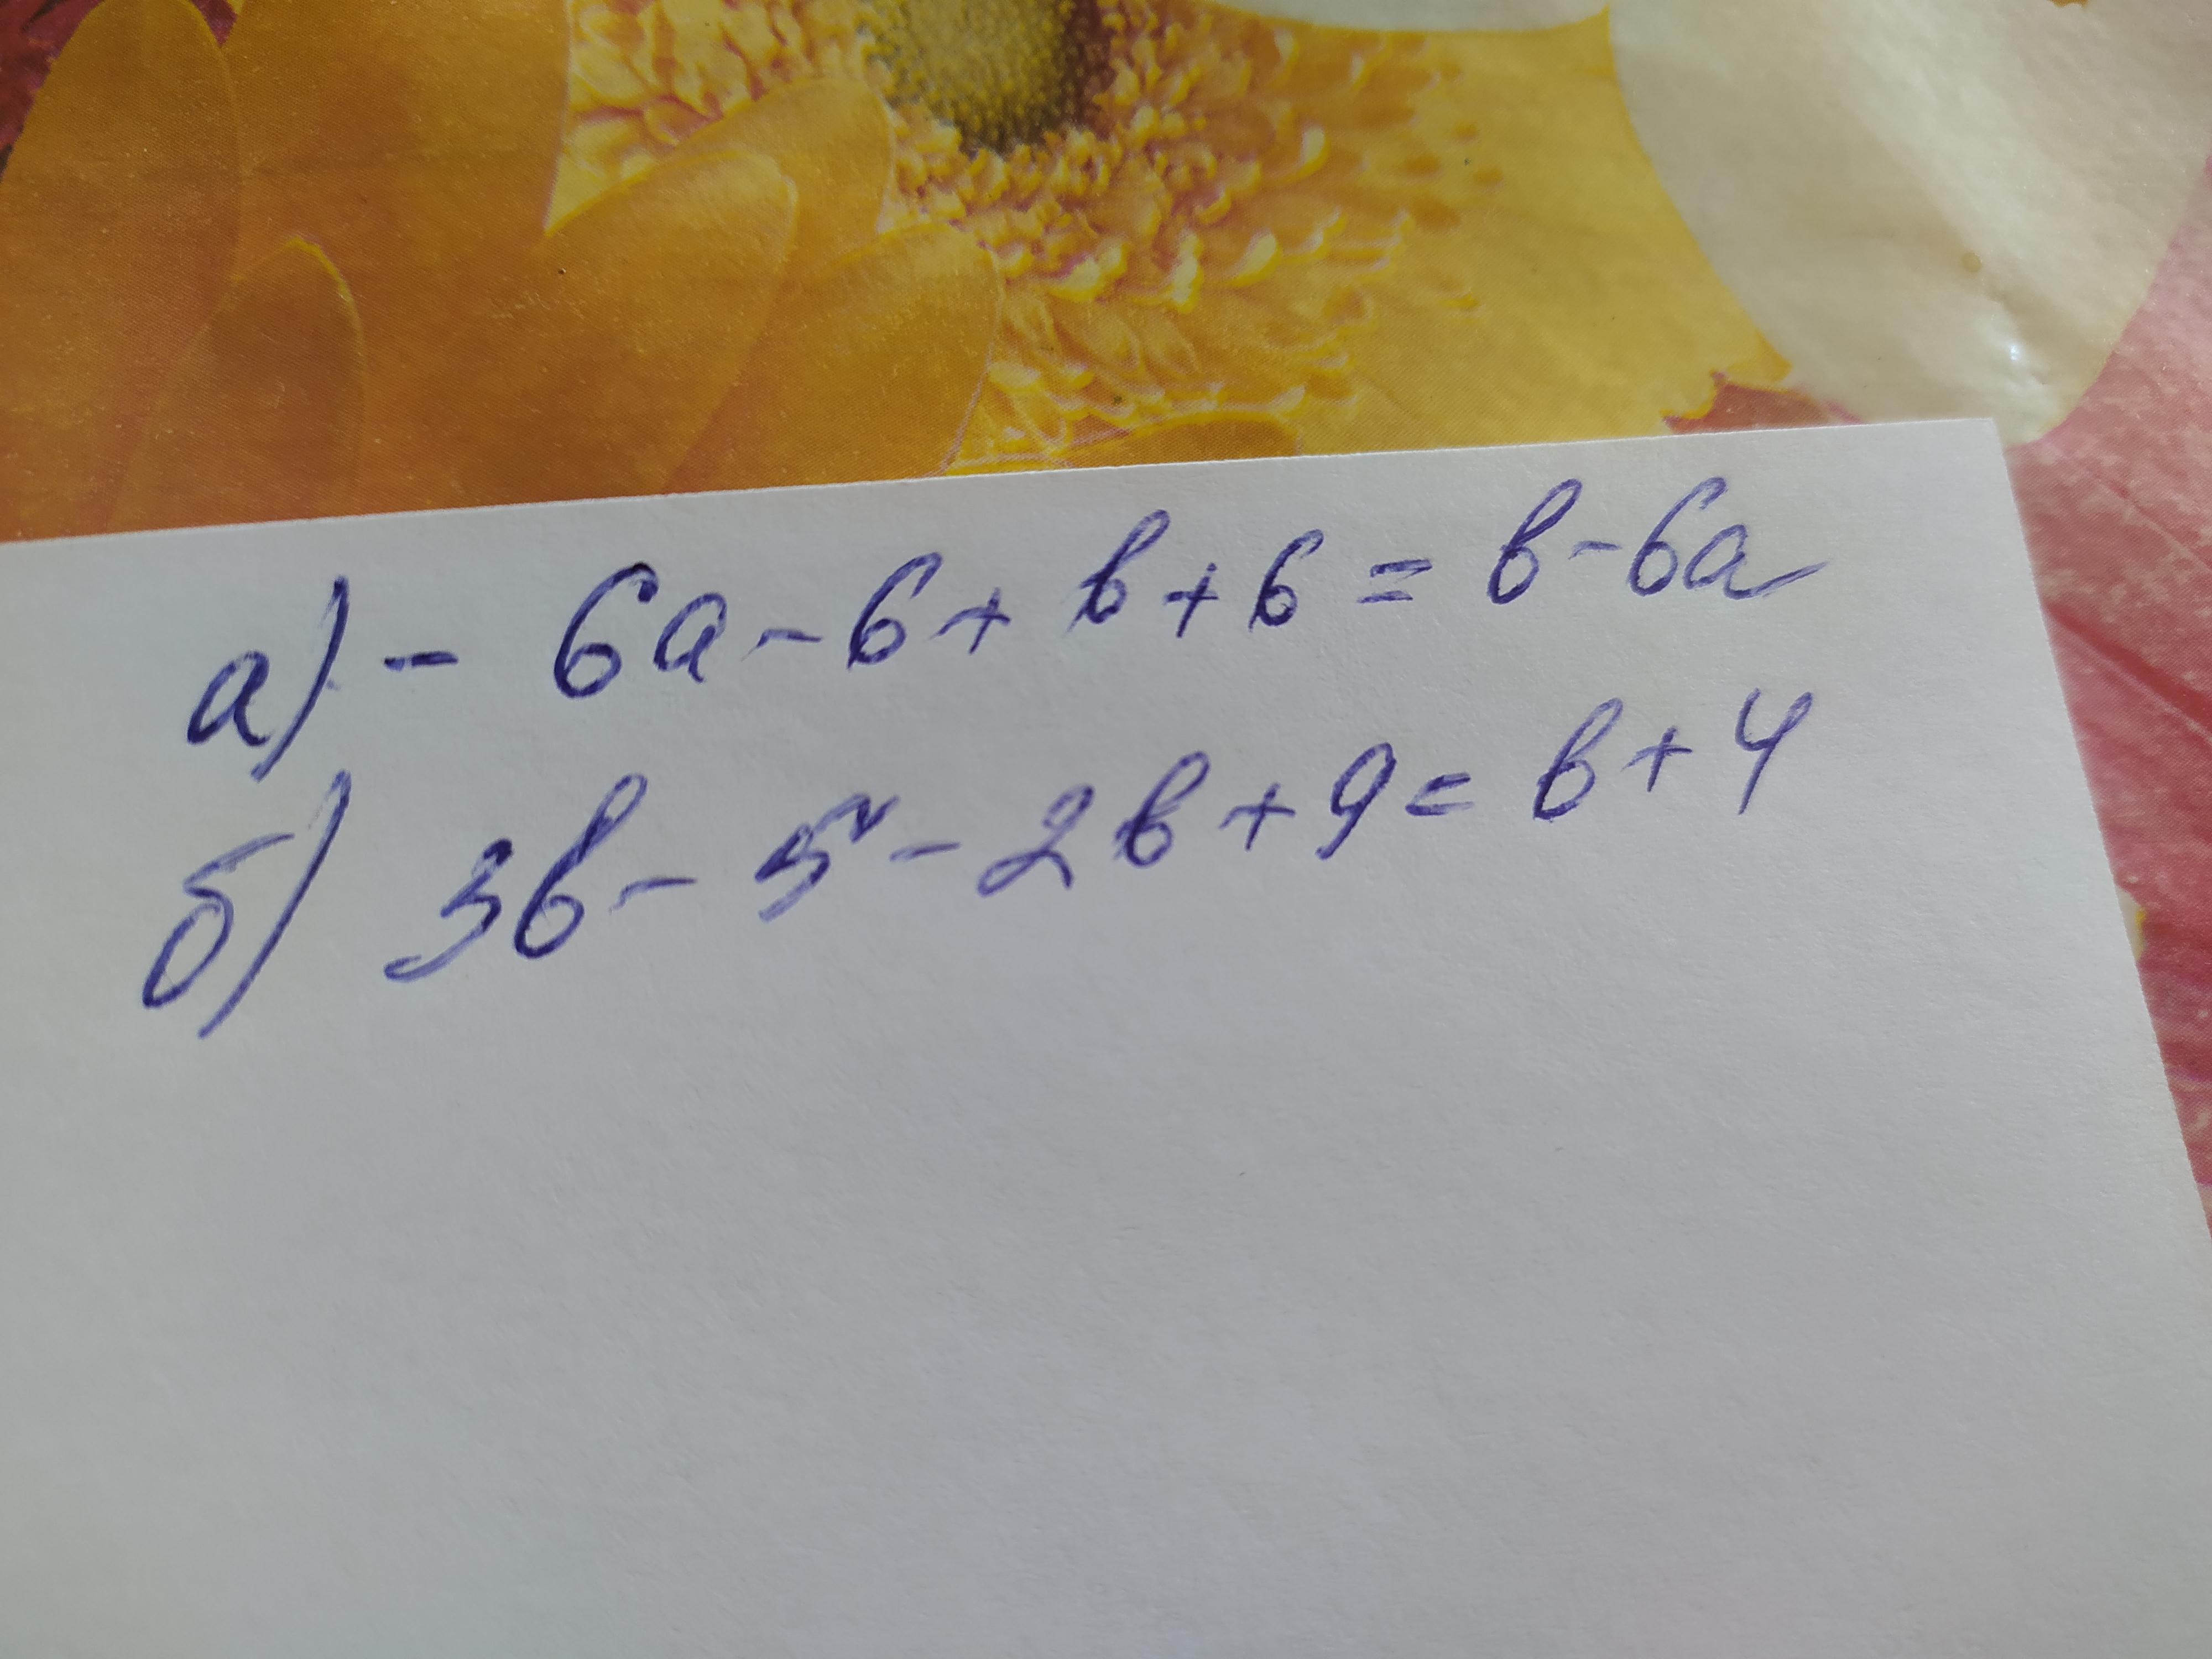 а) - 6a - 6 + b + 6 = b - 6a
б) 3b - 5 - 2b + 9 = b + 4